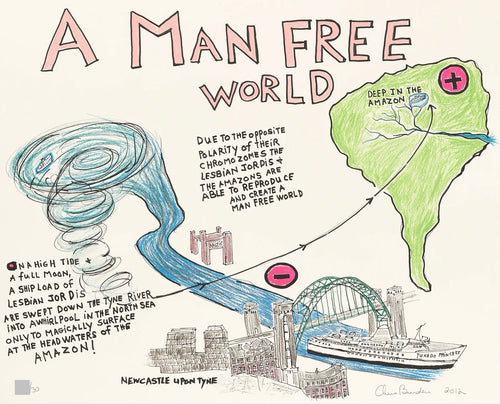 A MAN FREE
WORLD
DEEP IN THE
AMAZON
+
DUE TO THE OPPOSITE
POLARITY OF THEIR
CHROMOZOMES THE
LESBIAN JORDIS +
THE AMAZONS ARE
ABLE TO REPRODUCE
AND CREATE A
MAN FREE WORLD
BANK
ON A HIGH TIDE +
A FULL MOON,
A SHIPLOAD OF
LESBIAN JORDIS
ARE SWEPT DOWN THE TYNE RIVER
INTO A WHIRLPOOL IN THE NORTH SEA
ONLY TO MAGICALLY SURFACE
AT THE HEADWATERS OF THE
AMAZON!
-
TUXEDO PRINCESS
NEWCASTLE UPON TYNE
/30
Chris Burden 2012